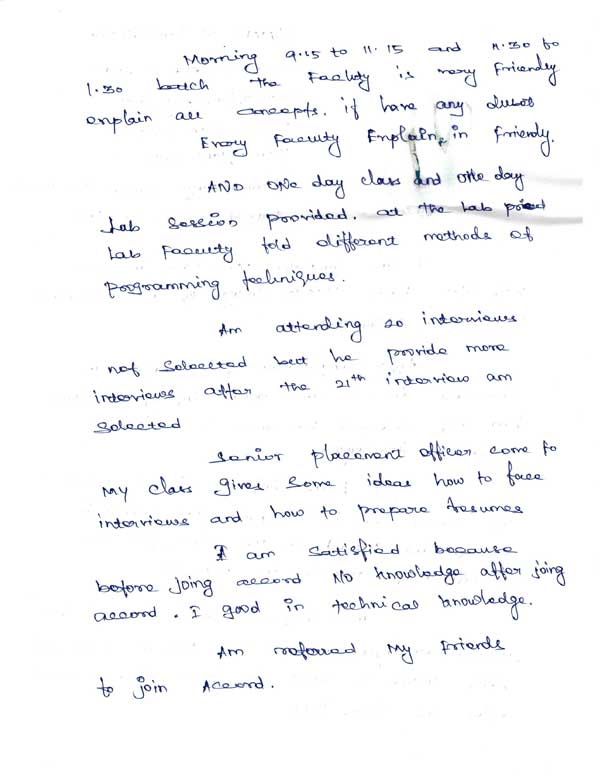 Morning 9.15 to 11.15 and 11.30 to
1.30 batch the Faculty is very Friendly
explain all concepts. if have any dubts
Every Faculty Explain, in Friendy.
AND ONE day class and one day
Lab Session provided. at the Lab preod
Lab Faculty told different methods of
programming techniques.
Am attending 20 interviews
not Selected but he provide more
interviews after the 21th interview am
Selected
Senior placement officer come to
My class gives Some ideas how to face
interviews and how to prepare resumes
I am Satisfied because
before joing accord No knowledge after joing
accord. I good in technical knowledge.
Am referred My Friends
to join Accord.